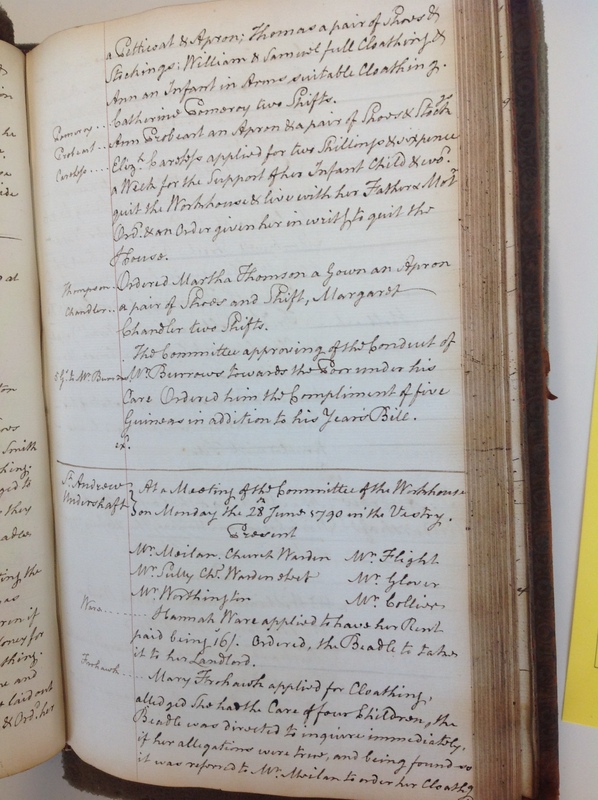 a Petticoat & Apron; Thomas a pair of Shoes &
Stockings; William & Samuel full Cloathing &
Ann an Infant in Arms suitable Cloathing.
Pomeroy .. Catherine Pomeroy two Shifts.
Probeart .. Ann Probeart an Apron & a pair of Shoes & Stock.gs
Careless .... Eliz.h Careless applied for two Shillings & sixpence
a Week for the Support of her Infant Child & wo.d
quit the Workhouse & live with her Father & Mot.r
Ord.d & an Order given her in writ.g to quit the
House.
Thompson. Ordered Martha Thomson a Gown an Apron
Chandler .. a pair of Shoes and Shift, Margaret
Chandler two Shifts.
The Committee approving of the Conduct of
5 G.s to Mr. Burrows Mr. Burrows towards the Poor under his
Care Ordered him the Compliment of five
Guineas in addition to his Years Bill.
ex.d
St. Andrew } At a Meeting of the Committee of the Workhouse
Undershaft } on Monday the 28 June 1790 in the Vestry.
Present
Mr. Meilan. Church Warden Mr. Flight
Mr. Sully Ch.h Warden elect Mr. Glover
Mr. Worthington Mr. Collier
Ware ...... Hannah Ware applied to have her Rent
paid being 16/. Ordered, the Beadle to take
it to her Landlord.
Frohawk .... Mary Frohawk applied for Cloathing,
alledged She hath the Care of four Children, the
Beadle was directed to inquire immediately,
if her allegations were true, and being found so
it was referred to Mr. Meilan to order her Cloath.g